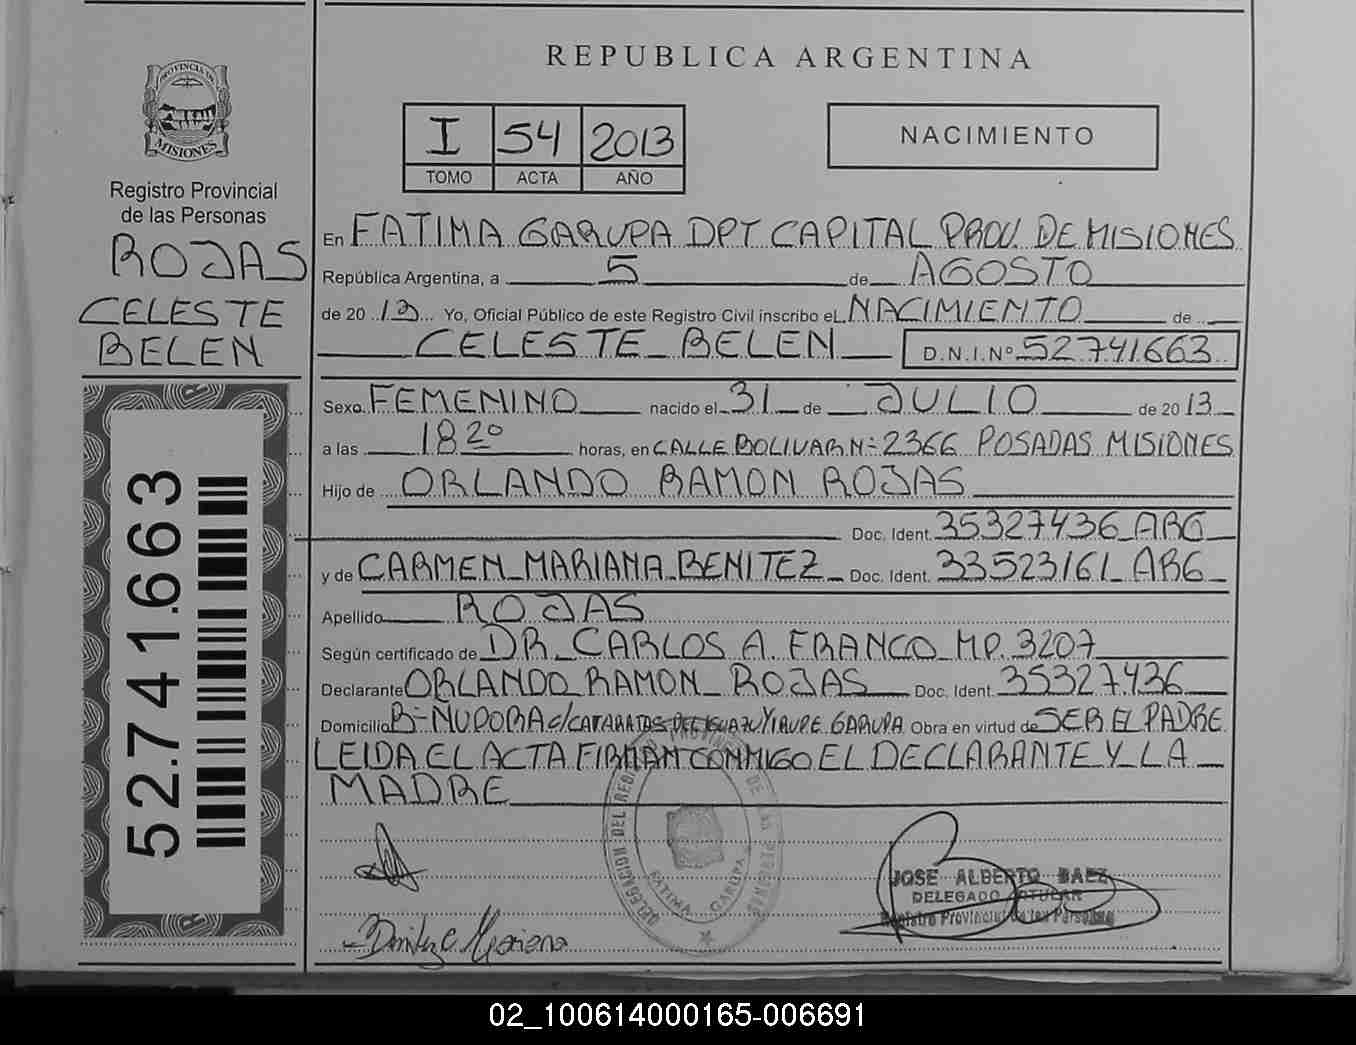 REPUBLICA ARGENTINA
PROVINCIA DE
MISIONES
Registro Provincial
de las Personas
ROJAS
CELESTE
BELEN
52.741.663
I 54 2013
TOMO ACTA AÑO
NACIMIENTO
En FATIMA GARUPA DPT CAPITAL PROV. DE MISIONES
República Argentina, a 5 de AGOSTO
de 20 13 Yo, Oficial Público de este Registro Civil inscribo el NACIMIENTO de
CELESTE BELEN D.N.I. Nº 52741663
Sexo FEMENINO nacido el 31 de JULIO de 20 13
a las 18 20 horas, en CALLE BOLIVAR Nº 2366 POSADAS MISIONES
Hijo de ORLANDO RAMON ROJAS
Doc. Ident. 35327436 ARG
y de CARMEN MARIANA BENITEZ Doc. Ident. 33523161 ARG
Apellido ROJAS
Según certificado de DR. CARLOS A. FRANCO MP. 3207
Declarante ORLANDO RAMON ROJAS Doc. Ident. 35327436
Domicilio Bº ÑUPORA c/ CATARATAS DEL IGUAZU Y IRUPE GARUPA Obra en virtud de SER EL PADRE
LEIDA EL ACTA FIRMAN CONMIGO EL DECLARANTE Y LA
MADRE
DELEGACION DEL REGISTRO PROVINCIAL DE LAS PERSONAS
FATIMA GARUPA
JOSE ALBERTO BAEZ
DELEGADO TITULAR
Registro Provincial de las Personas
Benitez C Mariana
02_100614000165-006691